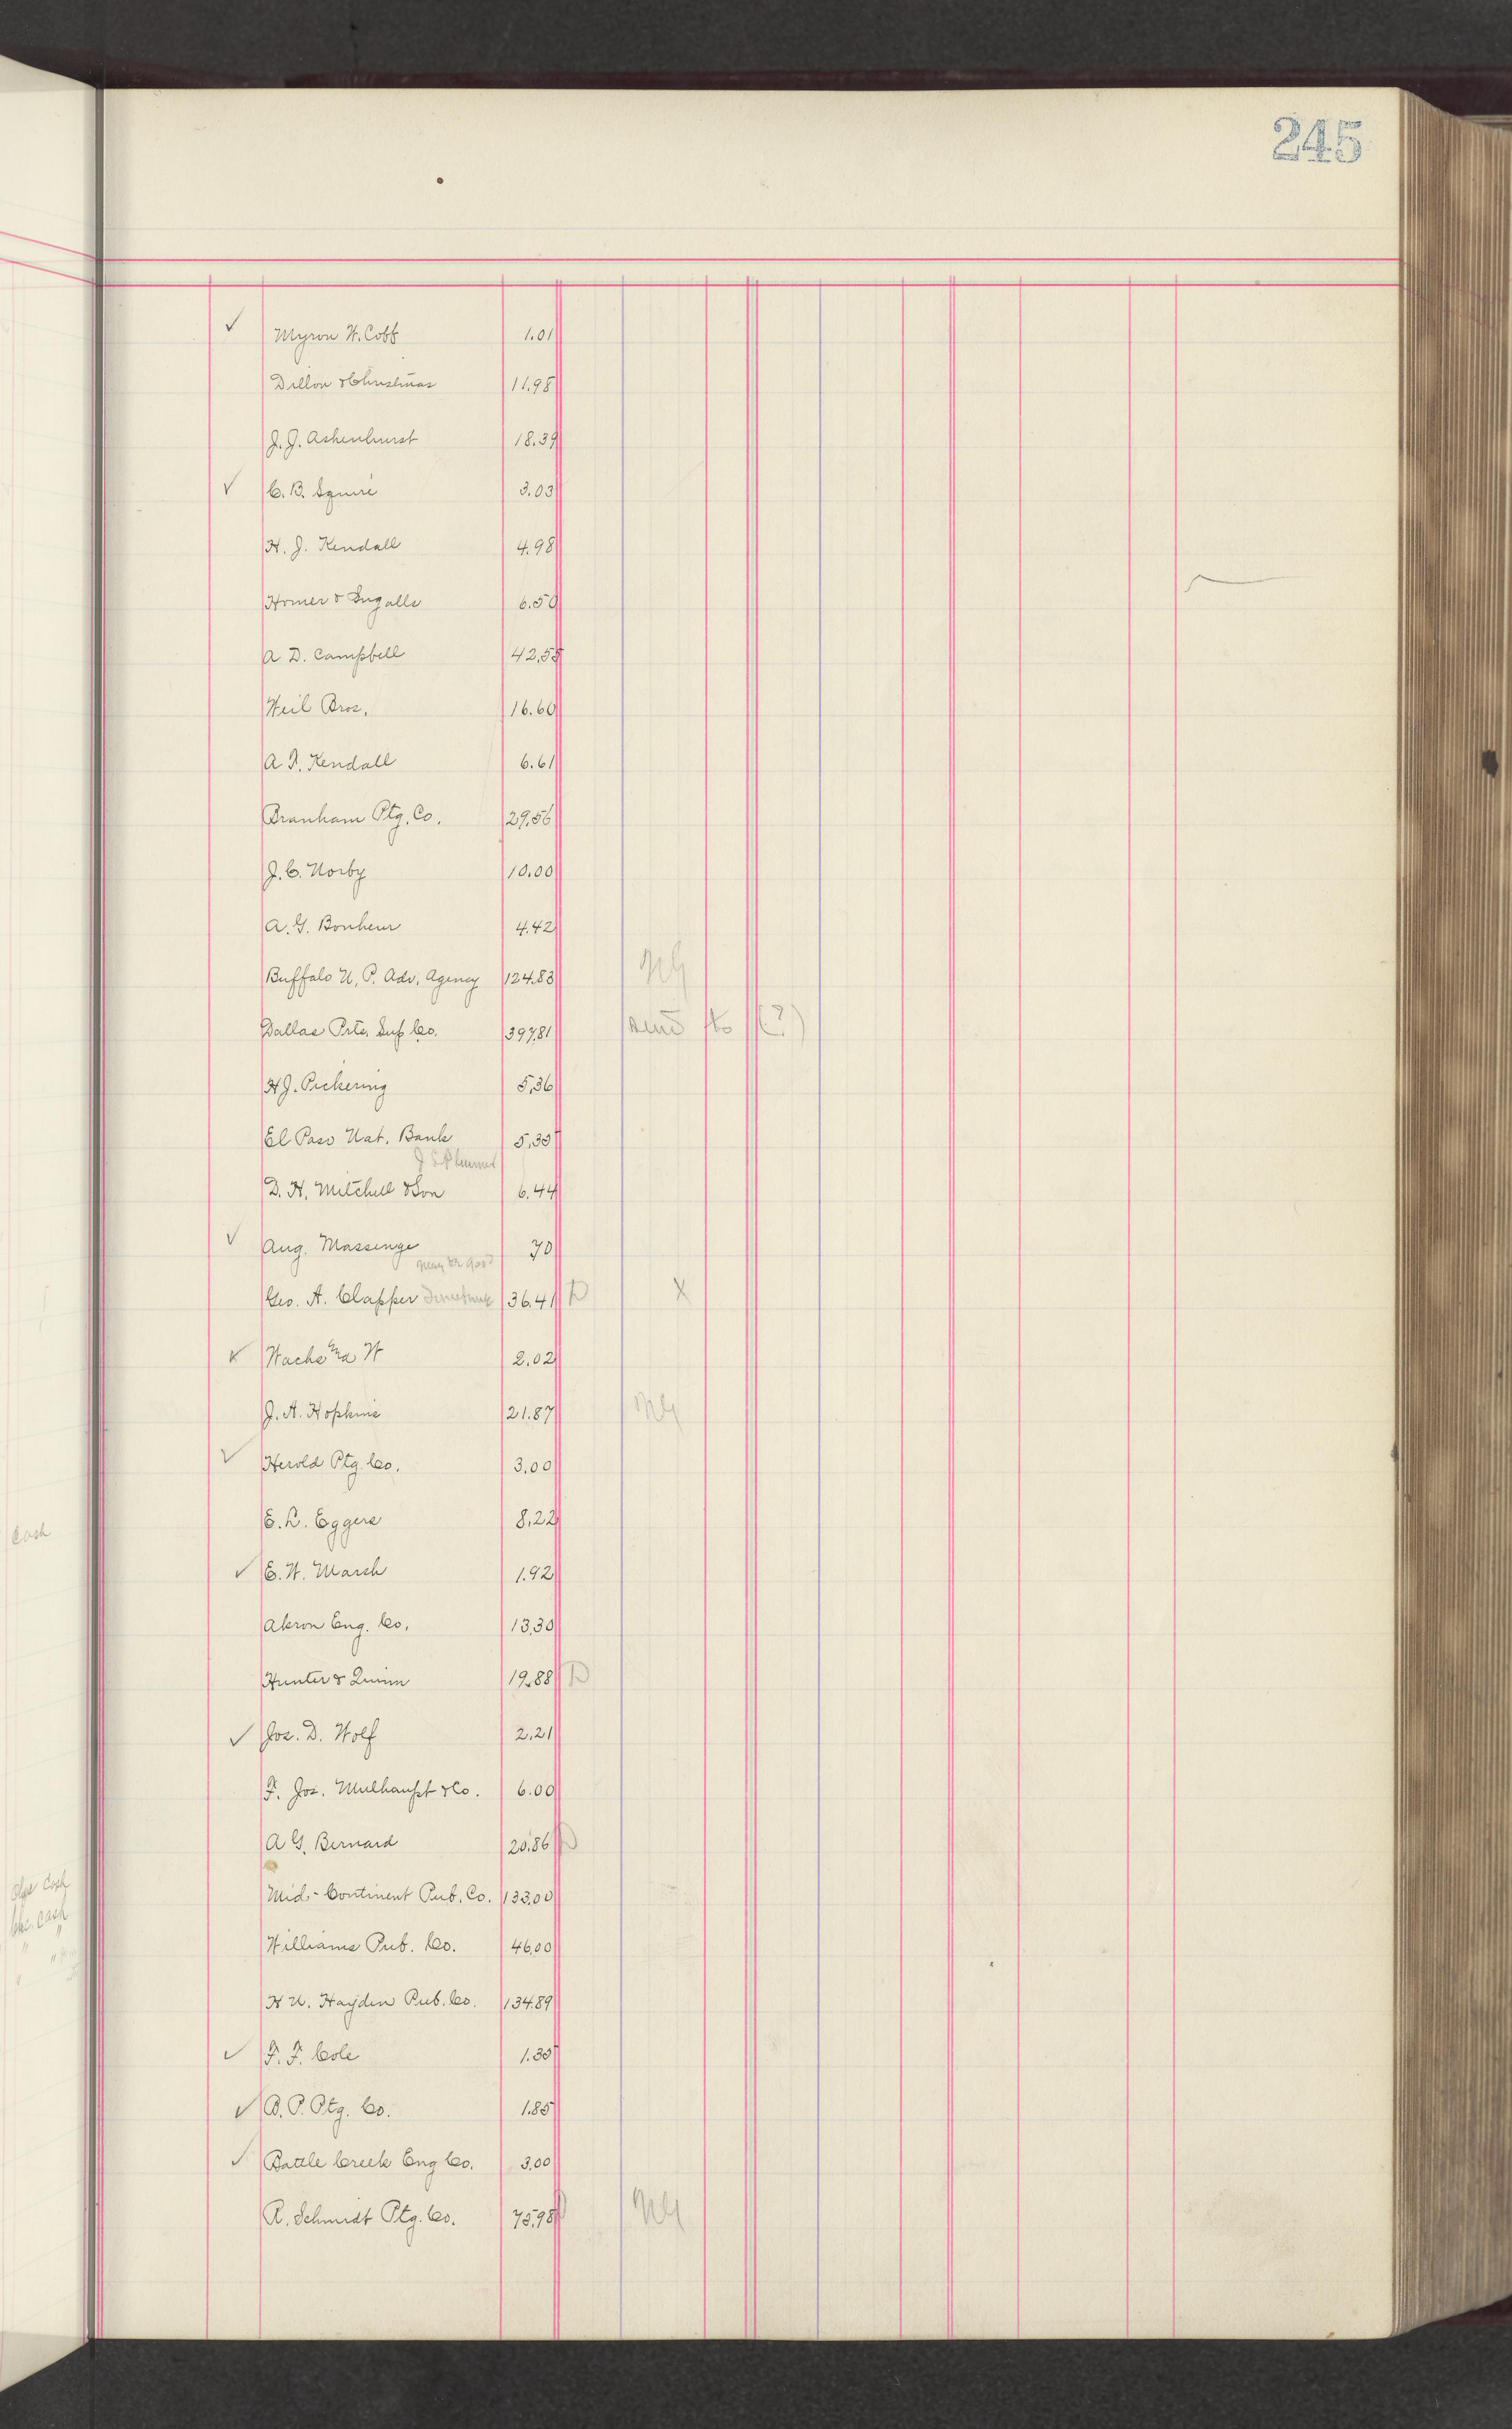 245
✓ Myron W. Cobb 1.01
Dillon & Christmas 11.98
J. J. Ashenhurst 18.39
✓ C. B. Squire 3.03
H. J. Kendall 4.98
Homer & Ingalls 6.50
A D. Campbell 42.55
Weil Bros. 16.60
A. Kendall 6.61
Branham Ptg. Co. 29.56
J. C. Norby 10.00
A. G. Bonheur 4.42
Buffalo N. P. Adv. Agency 124.83 NG
Dallas Prtrs Sup Co. 397.81 send to (?)
H J. Pickering 5.36
El Paso Nat. Bank 5.35
D. H. Mitchell & Son 6.44
✓ Aug. Massenge 70
may be good
Geo. A. Clapper 36.41 D X
✓ Wachs W 2.02
J. A. Hopkins 21.87 NG
✓ Herold Ptg. Co. 3.00
E. L. Eggers 8.22
Cash
✓ E. W. Marsh 1.92
Akron Eng. Co. 13.30
Hunter & Quinn 19.88 D
✓ Jos. D. Wolf 2.21
F. Jos. Mulhaupt & Co. 6.00
A G. Bernard 20.86 D
Mid-Continent Pub. Co. 133.00
Cash
Cash
Williams Pub. Co. 46.00
H N. Hayden Pub. Co. 134.89
✓ F. F. Cole 1.35
✓ B. P. Ptg. Co. 1.85
✓ Battle Creek Eng Co. 3.00
R. Schmidt Ptg. Co. 75.98 D NG